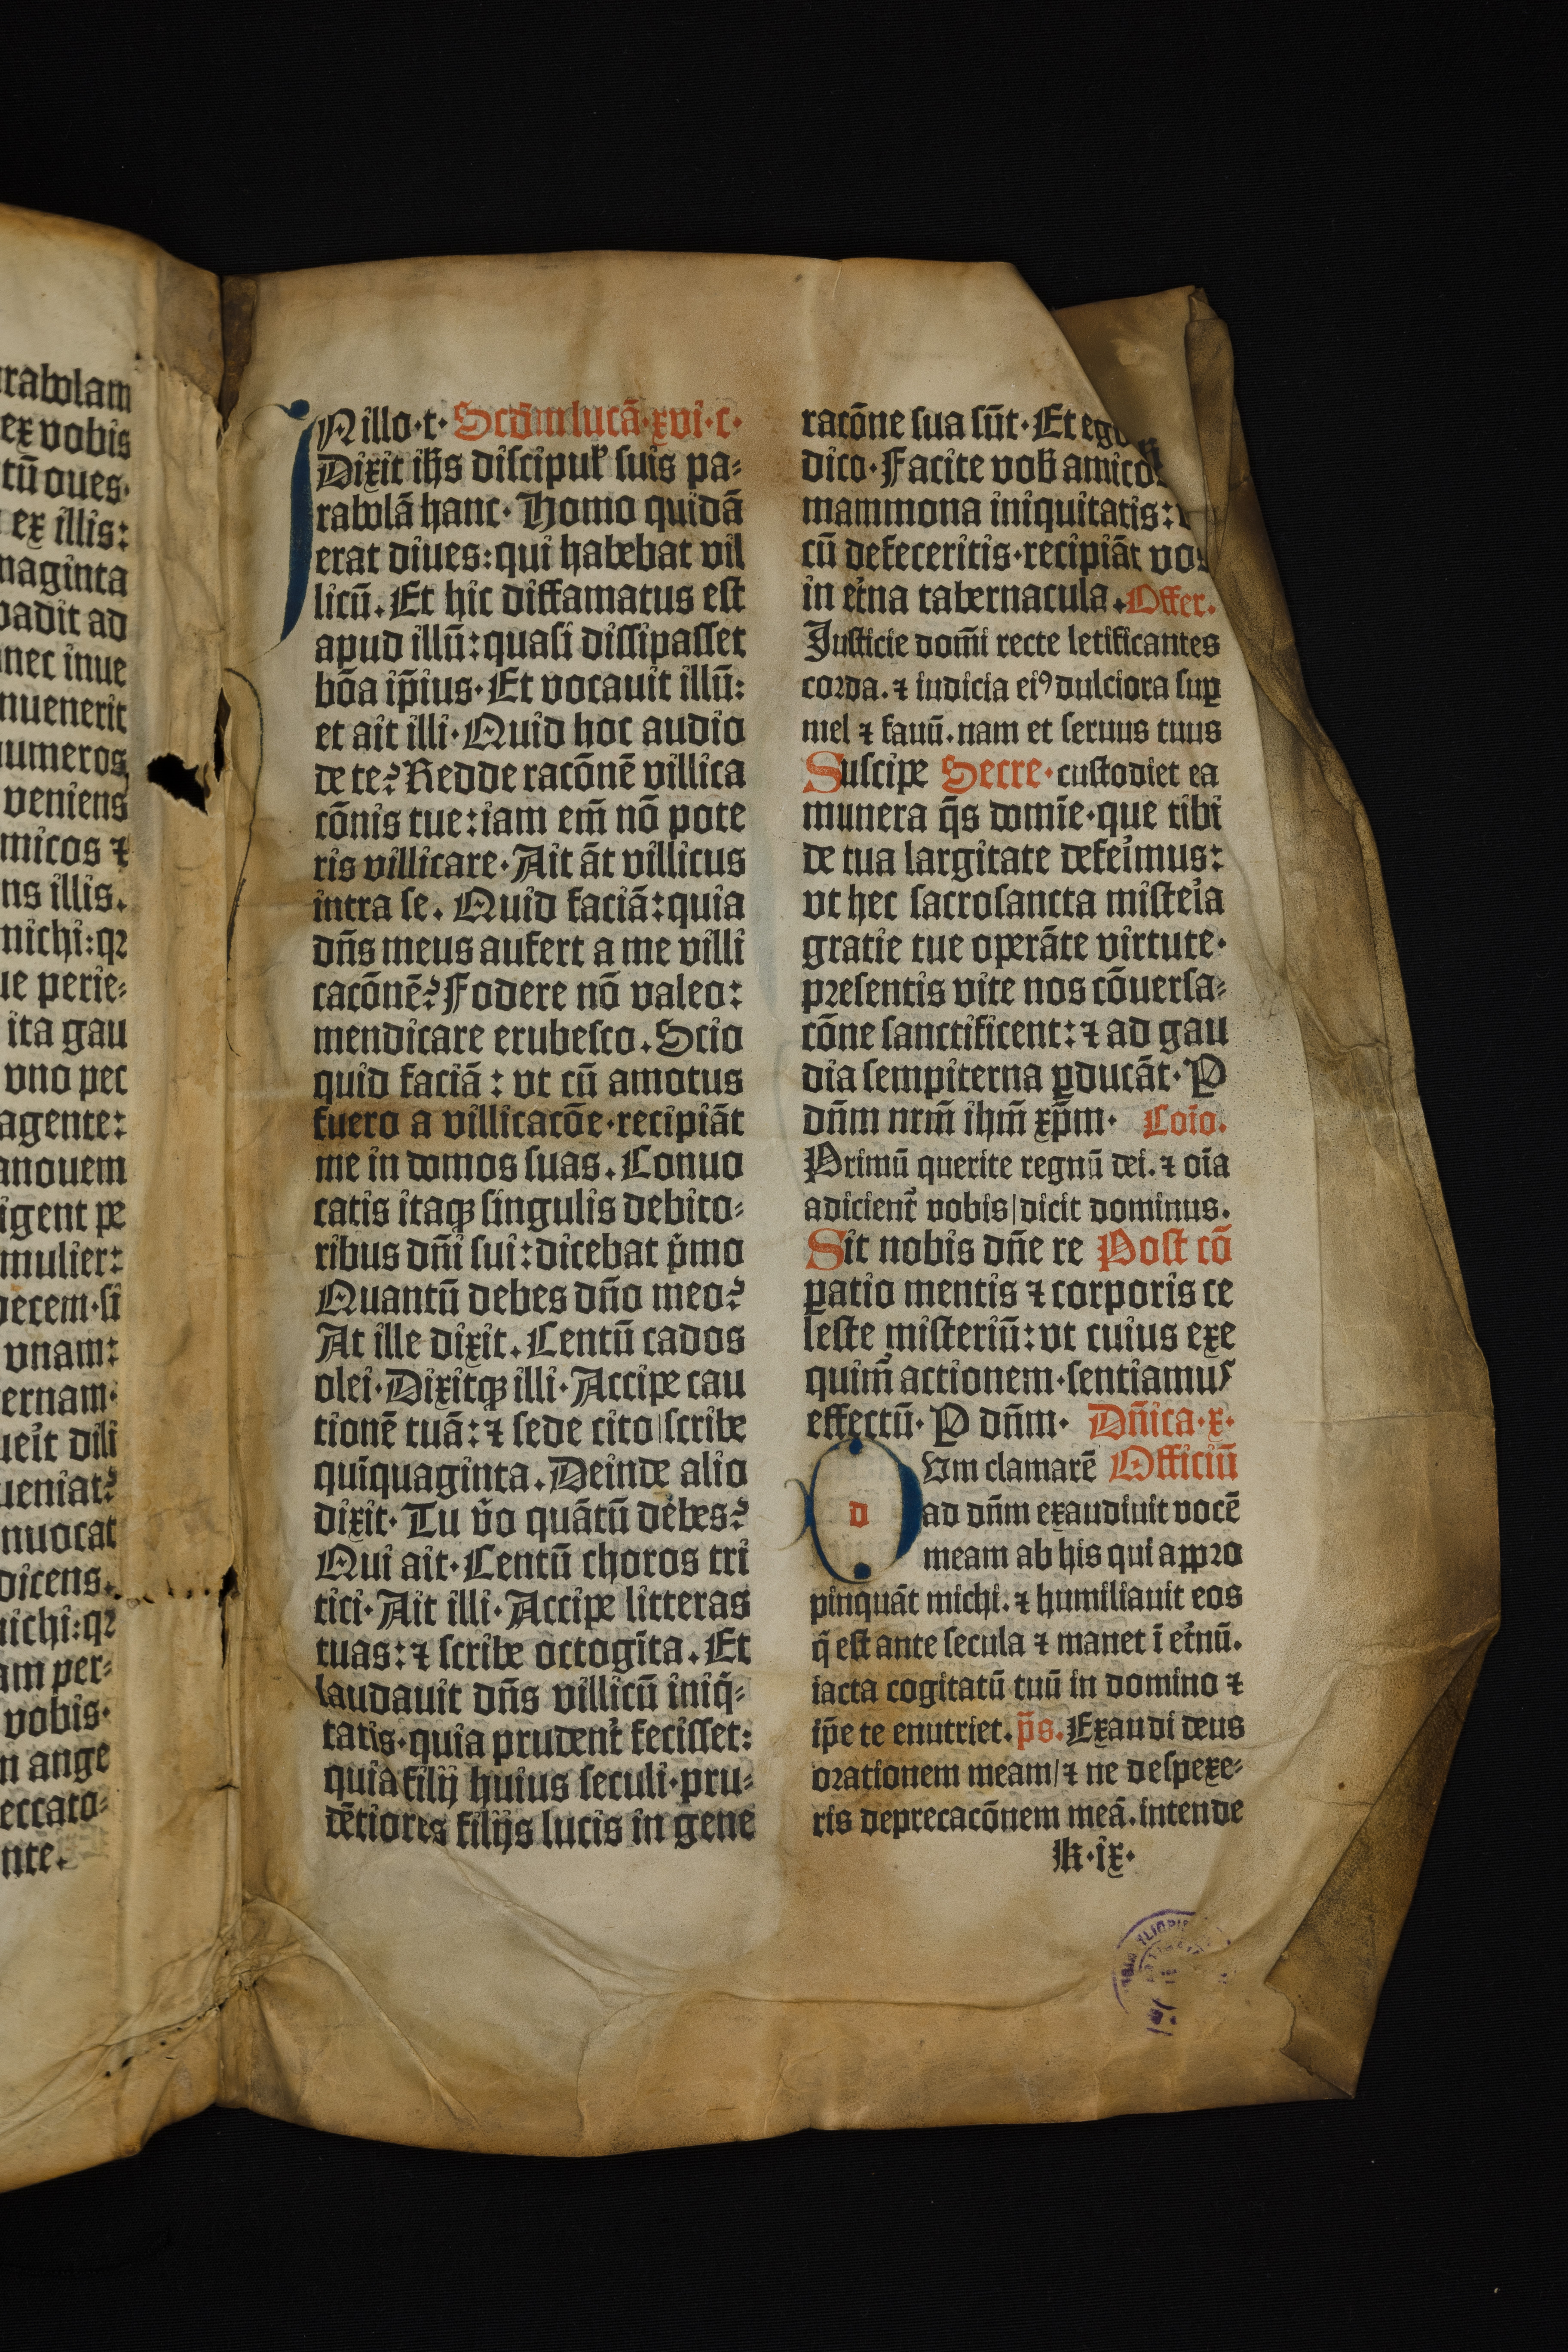 rabolam
ex vobis
tū oues·
ex illis:
naginta
vadit ad
nec inue
nuenerit
umeros
veniens
micos ⁊
ns illis.
michi:qꝛ
ue perie⸗
ita gau
vno pec
agente:
anouem
igent pe
mulier:
decem·si
vnam:
ernam·
ueı̉t dili
ueniat?
nuocat
dicens.
michi:qꝛ
am per⸗
vobis·
n ange
eccato⸗
nte.
IN illo·t· Scd̄m lucā·xvi·c·
Dixit ih̄s discipul̛ suis pa⸗
rabolā hanc· Homo quidā
erat diues:qui habebat vil
licū. Et hic diffamatus est
apud illū:quasi dissipasset
bōa ip̄ius· Et vocauit illū:
et ait illi· Quid hoc audio
de te? Redde racōnē villica
cōnis tue:iam em̄ nō pote
ris villicare· Ait āt villicus
intra se. Quid faciā:quia
dn̄s meus aufert a me villi
cacōnē? Fodere nō valeo:
mendicare erubesco. Scio
quid faciā: vt cū amotus
fuero a villicacōe·recipiāt
me in domos suas. Conuo
catis itaqꝫ singulis debito⸗
ribus dn̄i sui:dicebat p̄mo
Quantū debes dn̄o meo?
At ille dixit. Centū cados
olei· Dixitqꝫ illi· Accipe cau
tionē tuā:⁊ sede cito|scribe
quīquaginta. Deinde alio
dixit· Tu v̉o quātū debes?
Qui ait· Centū choros tri
tici· Ait illi· Accipe litteras
tuas:⁊ scribe octogīta. Et
laudauit dn̄s villicū iniq̄⸗
tatis·quia prudent̉ fecisset:
quia filij huius seculi·pru⸗
dētiores filijs lucis in gene
racōne sua sūt· Et ego
dico· Facite vob̄ amicos
mammona iniquitatis:
cū defeceritis·recipiāt vos
in et̉na tabernacula. Offer.
Justicie dom̄i recte letificantes
corda. ⁊ iudicia eiꝰ dulciora suꝑ
mel ⁊ fauū. nam et seruus tuus
Suscipe Secre· custodiet ea
munera q̄s domīe·que tibi
de tua largitate defeı̉mus:
vt hec sacrosancta misteı̉a
gratie tue operāte virtute·
presentis vite nos cōuersa⸗
cōne sanctificent:⁊ ad gau
dia sempiterna ꝑducāt· P
dn̄m nrm̄ ihm̄ xp̄m· Coīo.
Primū querite regnū dei. ⁊ oīa
adicient̉ vobis|dicit dominus.
Sit nobis dn̄e re Post cō
ꝑatio mentis ⁊ corporis ce
leste misteriū:vt cuius exe
quim̄ actionem·sentiamus
effectū· P dn̄m· Dn̄ica·x·
d Vm clamarē Officiū
ad dn̄m exaudiuit vocē
meam ab his qui appro
pinquāt michi. ⁊ humiliauit eos
q̄ est ante secula ⁊ manet ī et̉nū.
iacta cogitatū tuū in domino ⁊
ip̄e te enutriet. p̄s. Exaudi deus
orationem meam/⁊ ne despexe⸗
ris deprecacōnem meā. intende
k·ix·